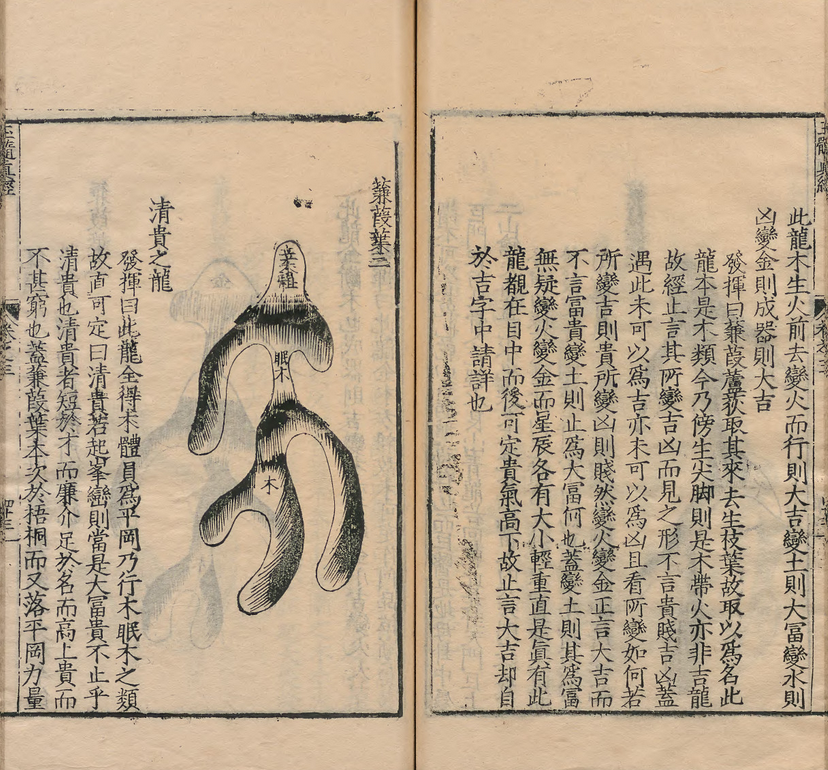 此龍木生火前去變火而行則大吉變土則大富變水則
凶變金則成器則大吉
發揮曰蒹葭蘆荻取其來去生枝葉故取以爲名此
龍本是木類今乃傍生尖脚則是木帶火亦非吉龍
故經止言其所變吉凶而見之形不言貴賤吉凶蓋
遇此未可以爲吉亦未可以爲凶且看所變如何若
所變吉則貴所變凶則賤然變火變金正言大吉而
不言富貴變土則止爲大富何也蓋變土則其爲富
無疑變火變金而星辰各有大小輕重直是眞有此
龍觀在目中而後可定貴氣高下故止言大吉却自
於吉字中請詳也
玉髓眞經
蒹葭葉三
葉祖
眠木
木
清貴之龍
發揮曰此龍全得木體員爲平岡乃行木眠木之類
故直可定曰清貴若起峯巒則當是大富貴不止乎
清貴也清貴者短於才而廉介足於名而高上貴而
不甚窮也蓋蒹葭葉本次於梧桐而又落平岡力量
玉髓眞經